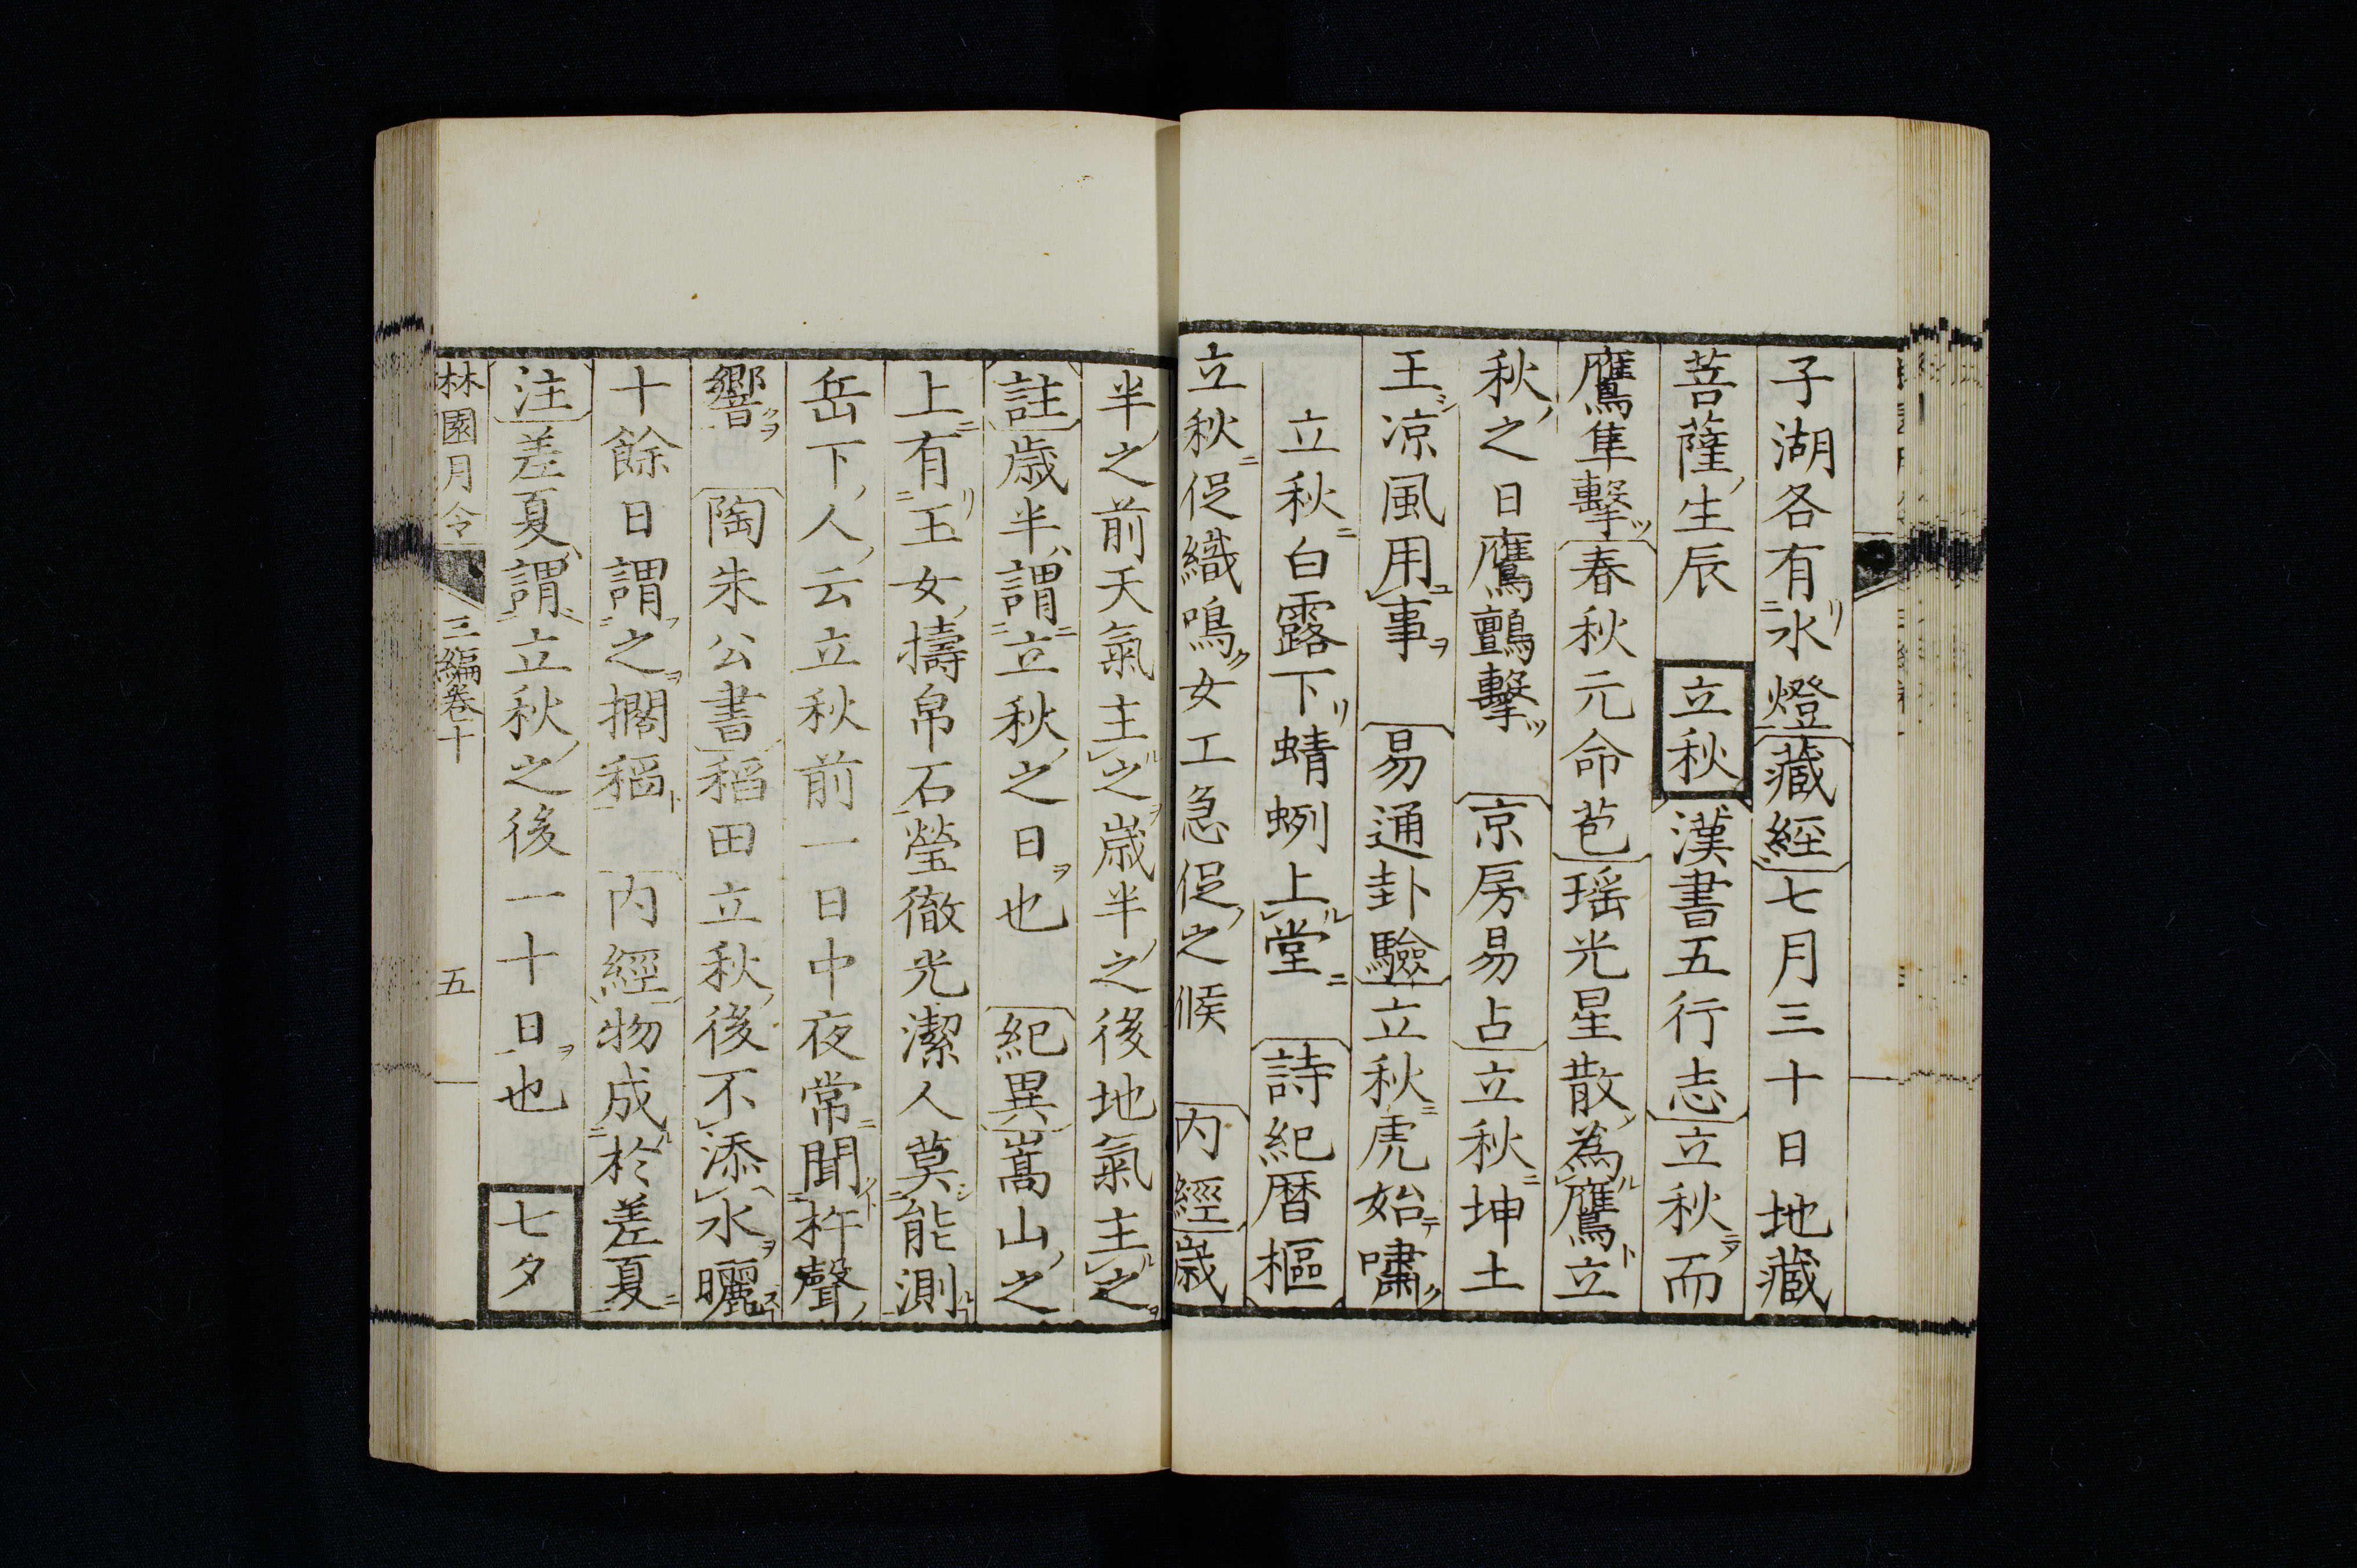 子湖各有水燈藏經七月三十日地藏
菩薩生辰　立秋漢書五行志立秋而
鷹隼擊春秋元命苞瑶光星散為鷹立
秋之日鷹鸇擊　京房易占立秋坤土
王凉風用事　易通卦驗立秋虎始嘯
立秋白露下蜻蛚上堂　詩紀暦樞
立秋促織鳴女工急促之候　内經歲
半之前天氣主之歲半之後地氣主之
註歲半謂立秋之日也　紀異嵩山之
上有玉女擣帛石瑩徹光潔人莫能測
岳下人云立秋前一日中夜常聞杵聲
響　陶朱公書稻田立秋後不添水曬
十餘日謂之擱稻　内經物成於差夏
注差夏謂立秋之後一十日也　七夕
林園月令　三編卷十　五